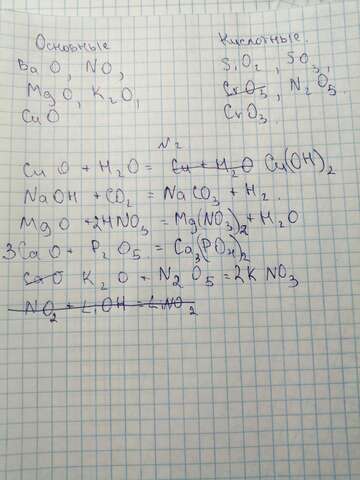 Основные
BaO, NO,
MgO, K2O,
CuO
Кислотные.
SiO2, SO3,
CrO5, N2O5.
CrO3.
N2
CuO + H2O = Cu + H2O Cu(OH)2
NaOH + CO2 = NaCO3 + H2.
MgO + 2HNO3 = Mg(NO3)2 + H2O
3CaO + P2O5 = Ca3(PO4)2
CaO K2O + N2O5 = 2KNO3
NO2 + LiOH = LiNO2